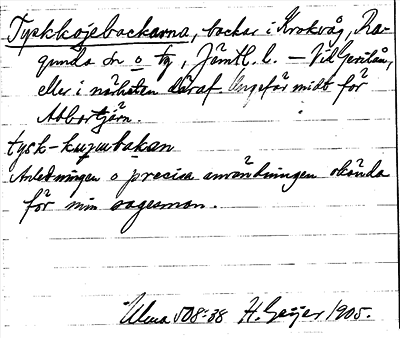 Tyskkojebackarna, backar i Krokvåg, Ra-
gunda sn o tg, Jämtl. l. – Vid Gerilån,
eller i närheten däraf. Ungefär midt för
Abborrtjärn.
tysk-
Anledningen o precisa användningen okända
för min sagesman.
Ulma 508:38 H. Geijer 1905.